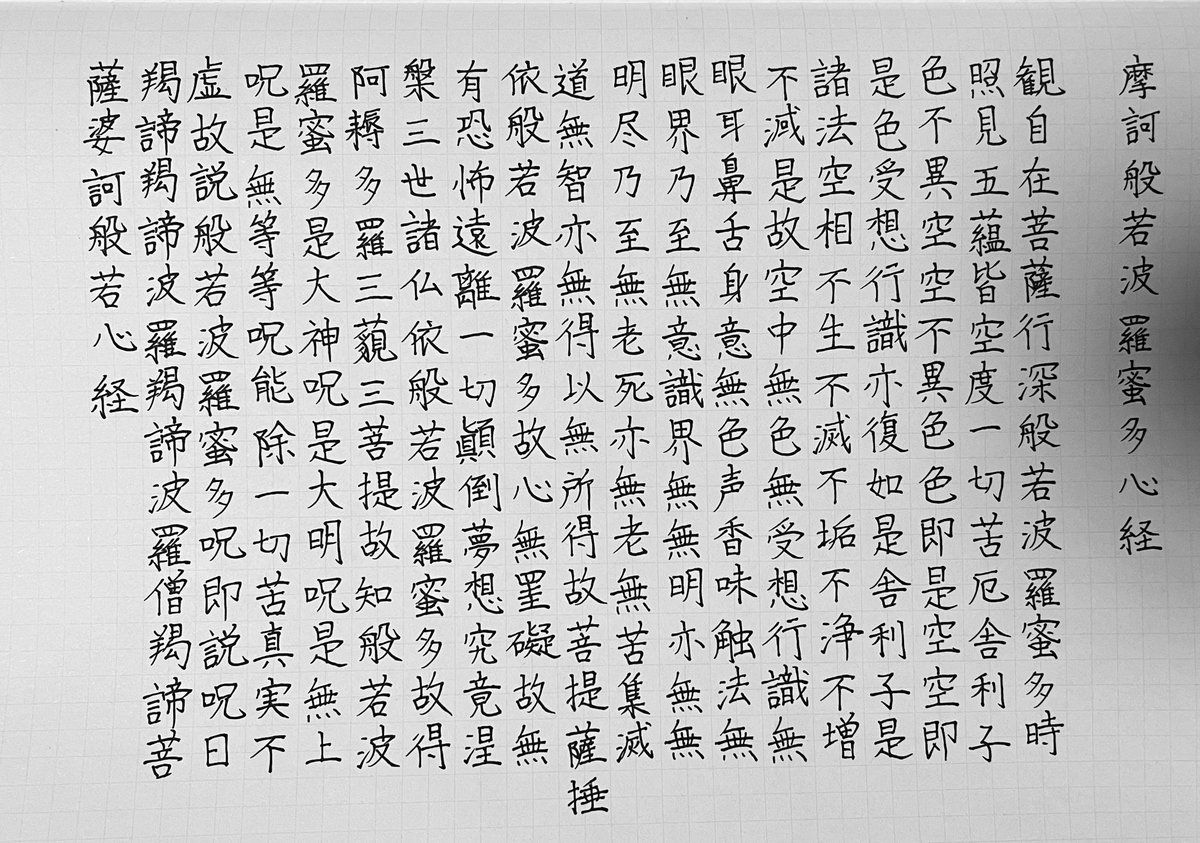 摩訶般若波羅蜜多心経
観自在菩薩行深般若波羅蜜多時
照見五蘊皆空度一切苦厄舎利子
色不異空空不異色色即是空空即
是色受想行識亦復如是舎利子是
諸法空相不生不滅不垢不浄不増
不減是故空中無色無受想行識無
眼耳鼻舌身意無色声香味触法無
眼界乃至無意識界無無明亦無無
明尽乃至無老死亦無老無苦集滅
道無智亦無得以無所得故菩提薩捶
依般若波羅蜜多故心無罣礙故無
有恐怖遠離一切顛倒夢想究竟涅
槃三世諸仏依般若波羅蜜多故得
阿耨多羅三藐三菩提故知般若波
羅蜜多是大神呪是大明呪是無上
呪是無等等呪能除一切苦真実不
虚故説般若波羅蜜多呪即説呪曰
羯諦羯諦波羅羯諦波羅僧羯諦菩
薩婆訶般若心経